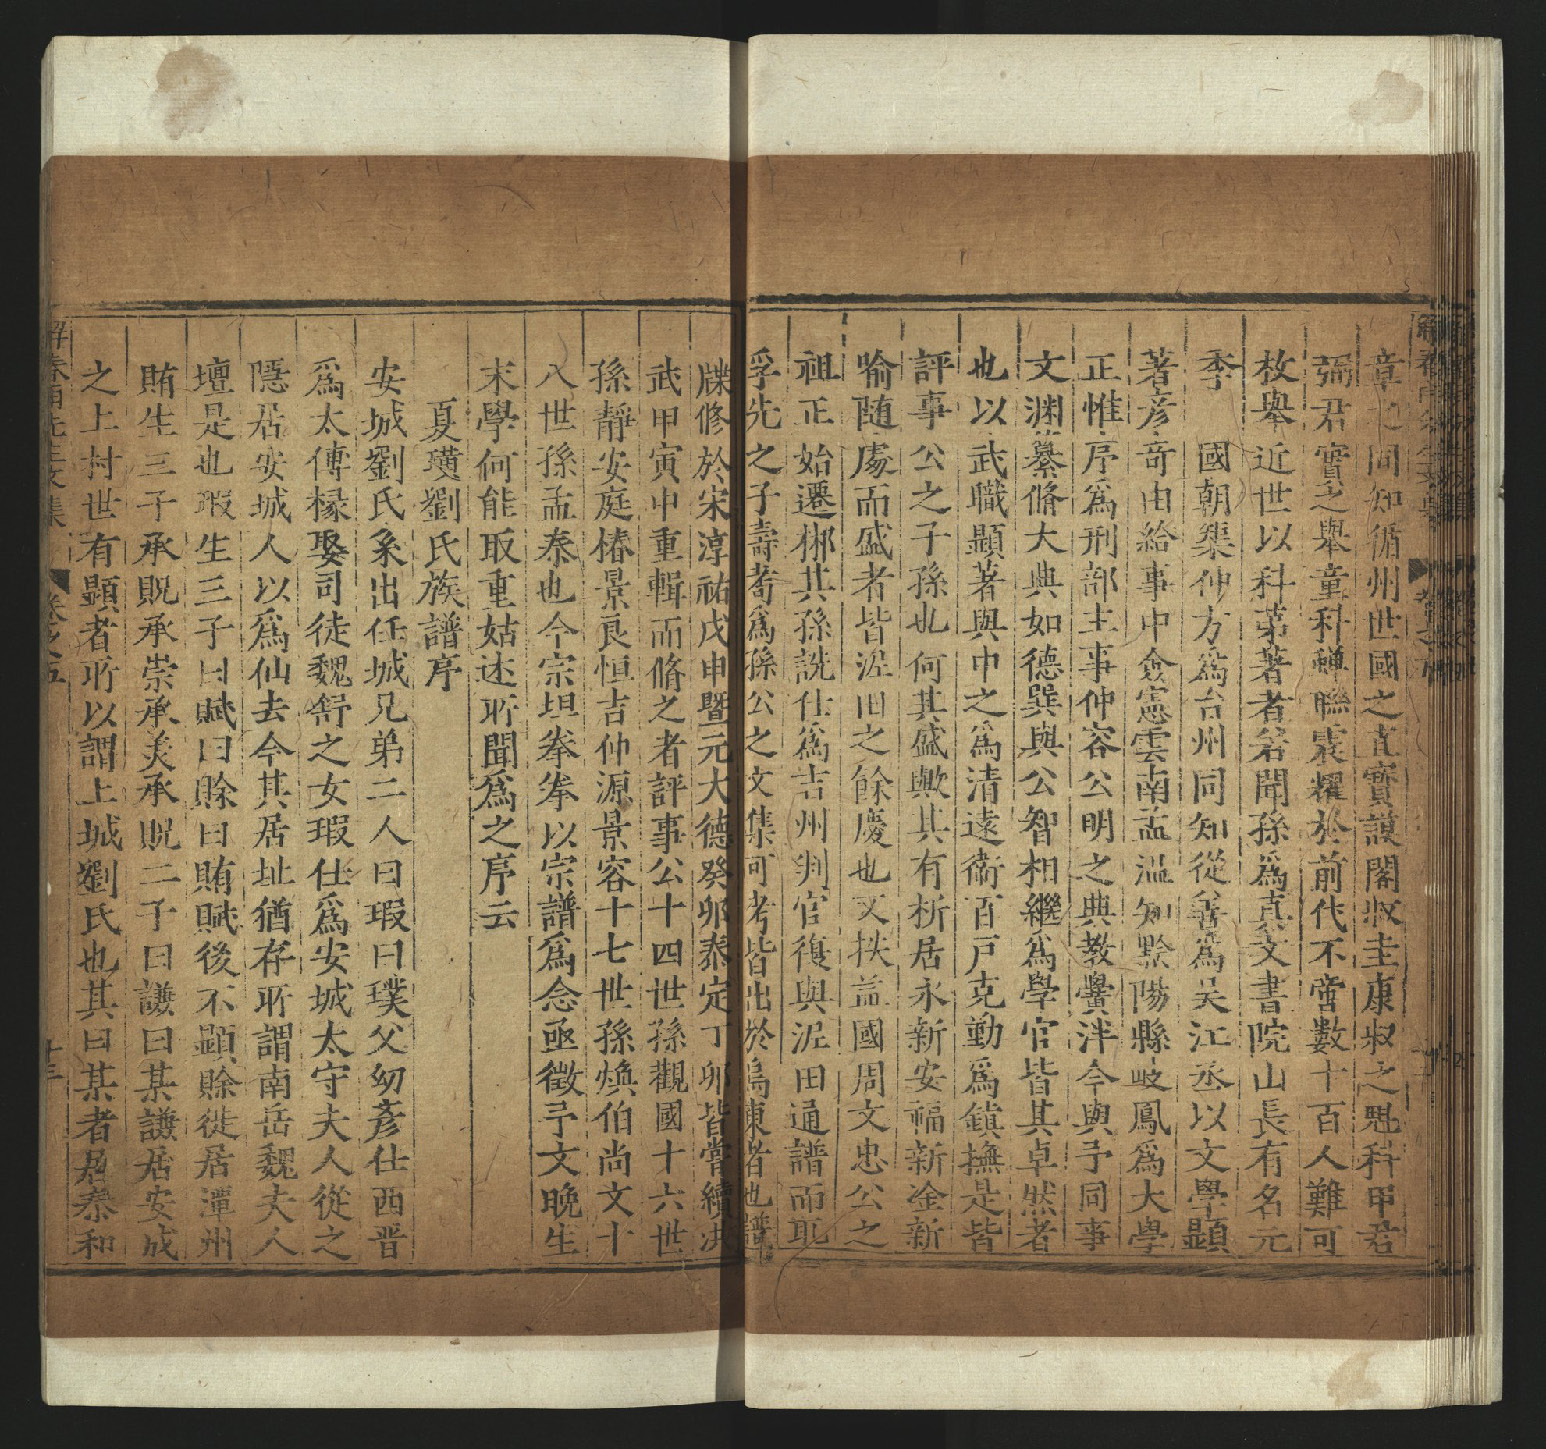 章之同知循州世國之直寳謨閣叔圭康叔之魁科甲君
彌君實之舉童科蟬聯裳耀於前代不啻數十百人難可
枚舉近世以科第著者若聞孫爲真文書院山長有名元
季　國朝榘仲方爲台州同知從善爲吴江丞以文學顯
著彦奇由給事中僉憲雲南孟温知黟陽縣岐鳳爲大學
正惟序爲刑部主事仲容公明之典教黌泮今與予同事
文渊纂脩大典如德巽與公智相繼爲學官皆其卓然者
也以武職顯著與中之爲清逺衞百戸克勤爲鎮撫是皆
評事公之子孫也何其盛歟其有析居永新安福新淦新
喻随處而盛者皆泥田之餘慶也文扶益國周文忠公之
祖正始遷梆其孫詵仕爲吉州判官復與泥田通譜而耴
孚先之子壽耉爲孫公之文集可考皆出於烏東者也譜
牒修於宋淳祐戊申暨元大德癸卯泰定丁卯皆嘗續洪
武甲寅中重輯而脩之者評事公十四世孫觀國十六世
孫靜安庭椿景良恒吉仲源景容十七世孫煥伯尚文十
八世孫孟泰也今宗坦拳拳以宗譜爲念亟徵予文晩生
末學何能取重姑述所聞爲之序云
夏璜劉氏族譜序
安城劉氏系出任城兄弟二人曰瑕曰璞父㓜彦仕西晋
爲太傅椽娶司徒魏舒之女瑕仕爲安城太守夫人從之
隱居安城人以爲仙去今其居址猶存所謂南岳魏夫人
壇是也瑕生三子曰賦曰賖曰賄賦後不顯賖徙居潭州
賄生三子承貺承崇承美承貺二子曰謙曰某謙居安成
之上村世有顯者所以謂上城劉氏也其曰某者居泰和
解春雨先生文集　卷之五　十三